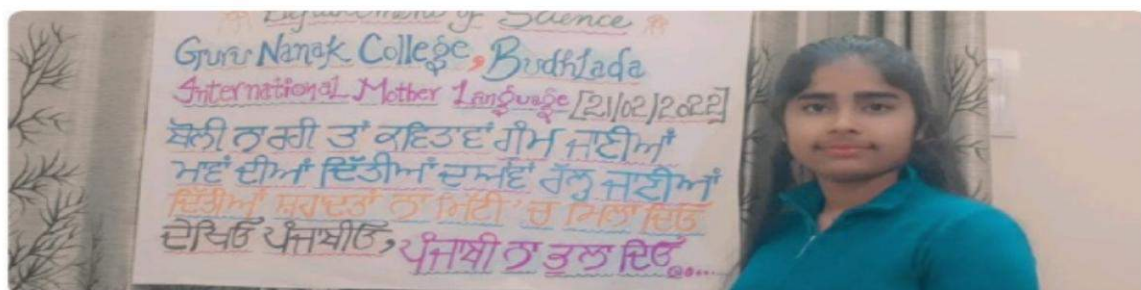 Department of Science
Guru Nanak College, Budhlada
International Mother Language [21/02/2022]
ਬੋਲੀ ਨਾ ਰਹੀ ਤਾਂ ਕਵਿਤਾਵਾਂ ਗੁੰਮ ਜਾਣੀਆਂ
ਮਾਵਾਂ ਦੀਆਂ ਦਿੱਤੀਆਂ ਦੁਆਵਾਂ ਰੁਲ ਜਾਣੀਆਂ
ਦਿੱਤੀਆਂ ਸ਼ਹਾਦਤਾਂ ਨਾ ਮਿੱਟੀ 'ਚ ਮਿਲਾ ਦਿਓ
ਦੇਖਿਓ ਪੰਜਾਬੀਓ, ਪੰਜਾਬੀ ਨਾ ਭੁਲਾ ਦਿਓ....